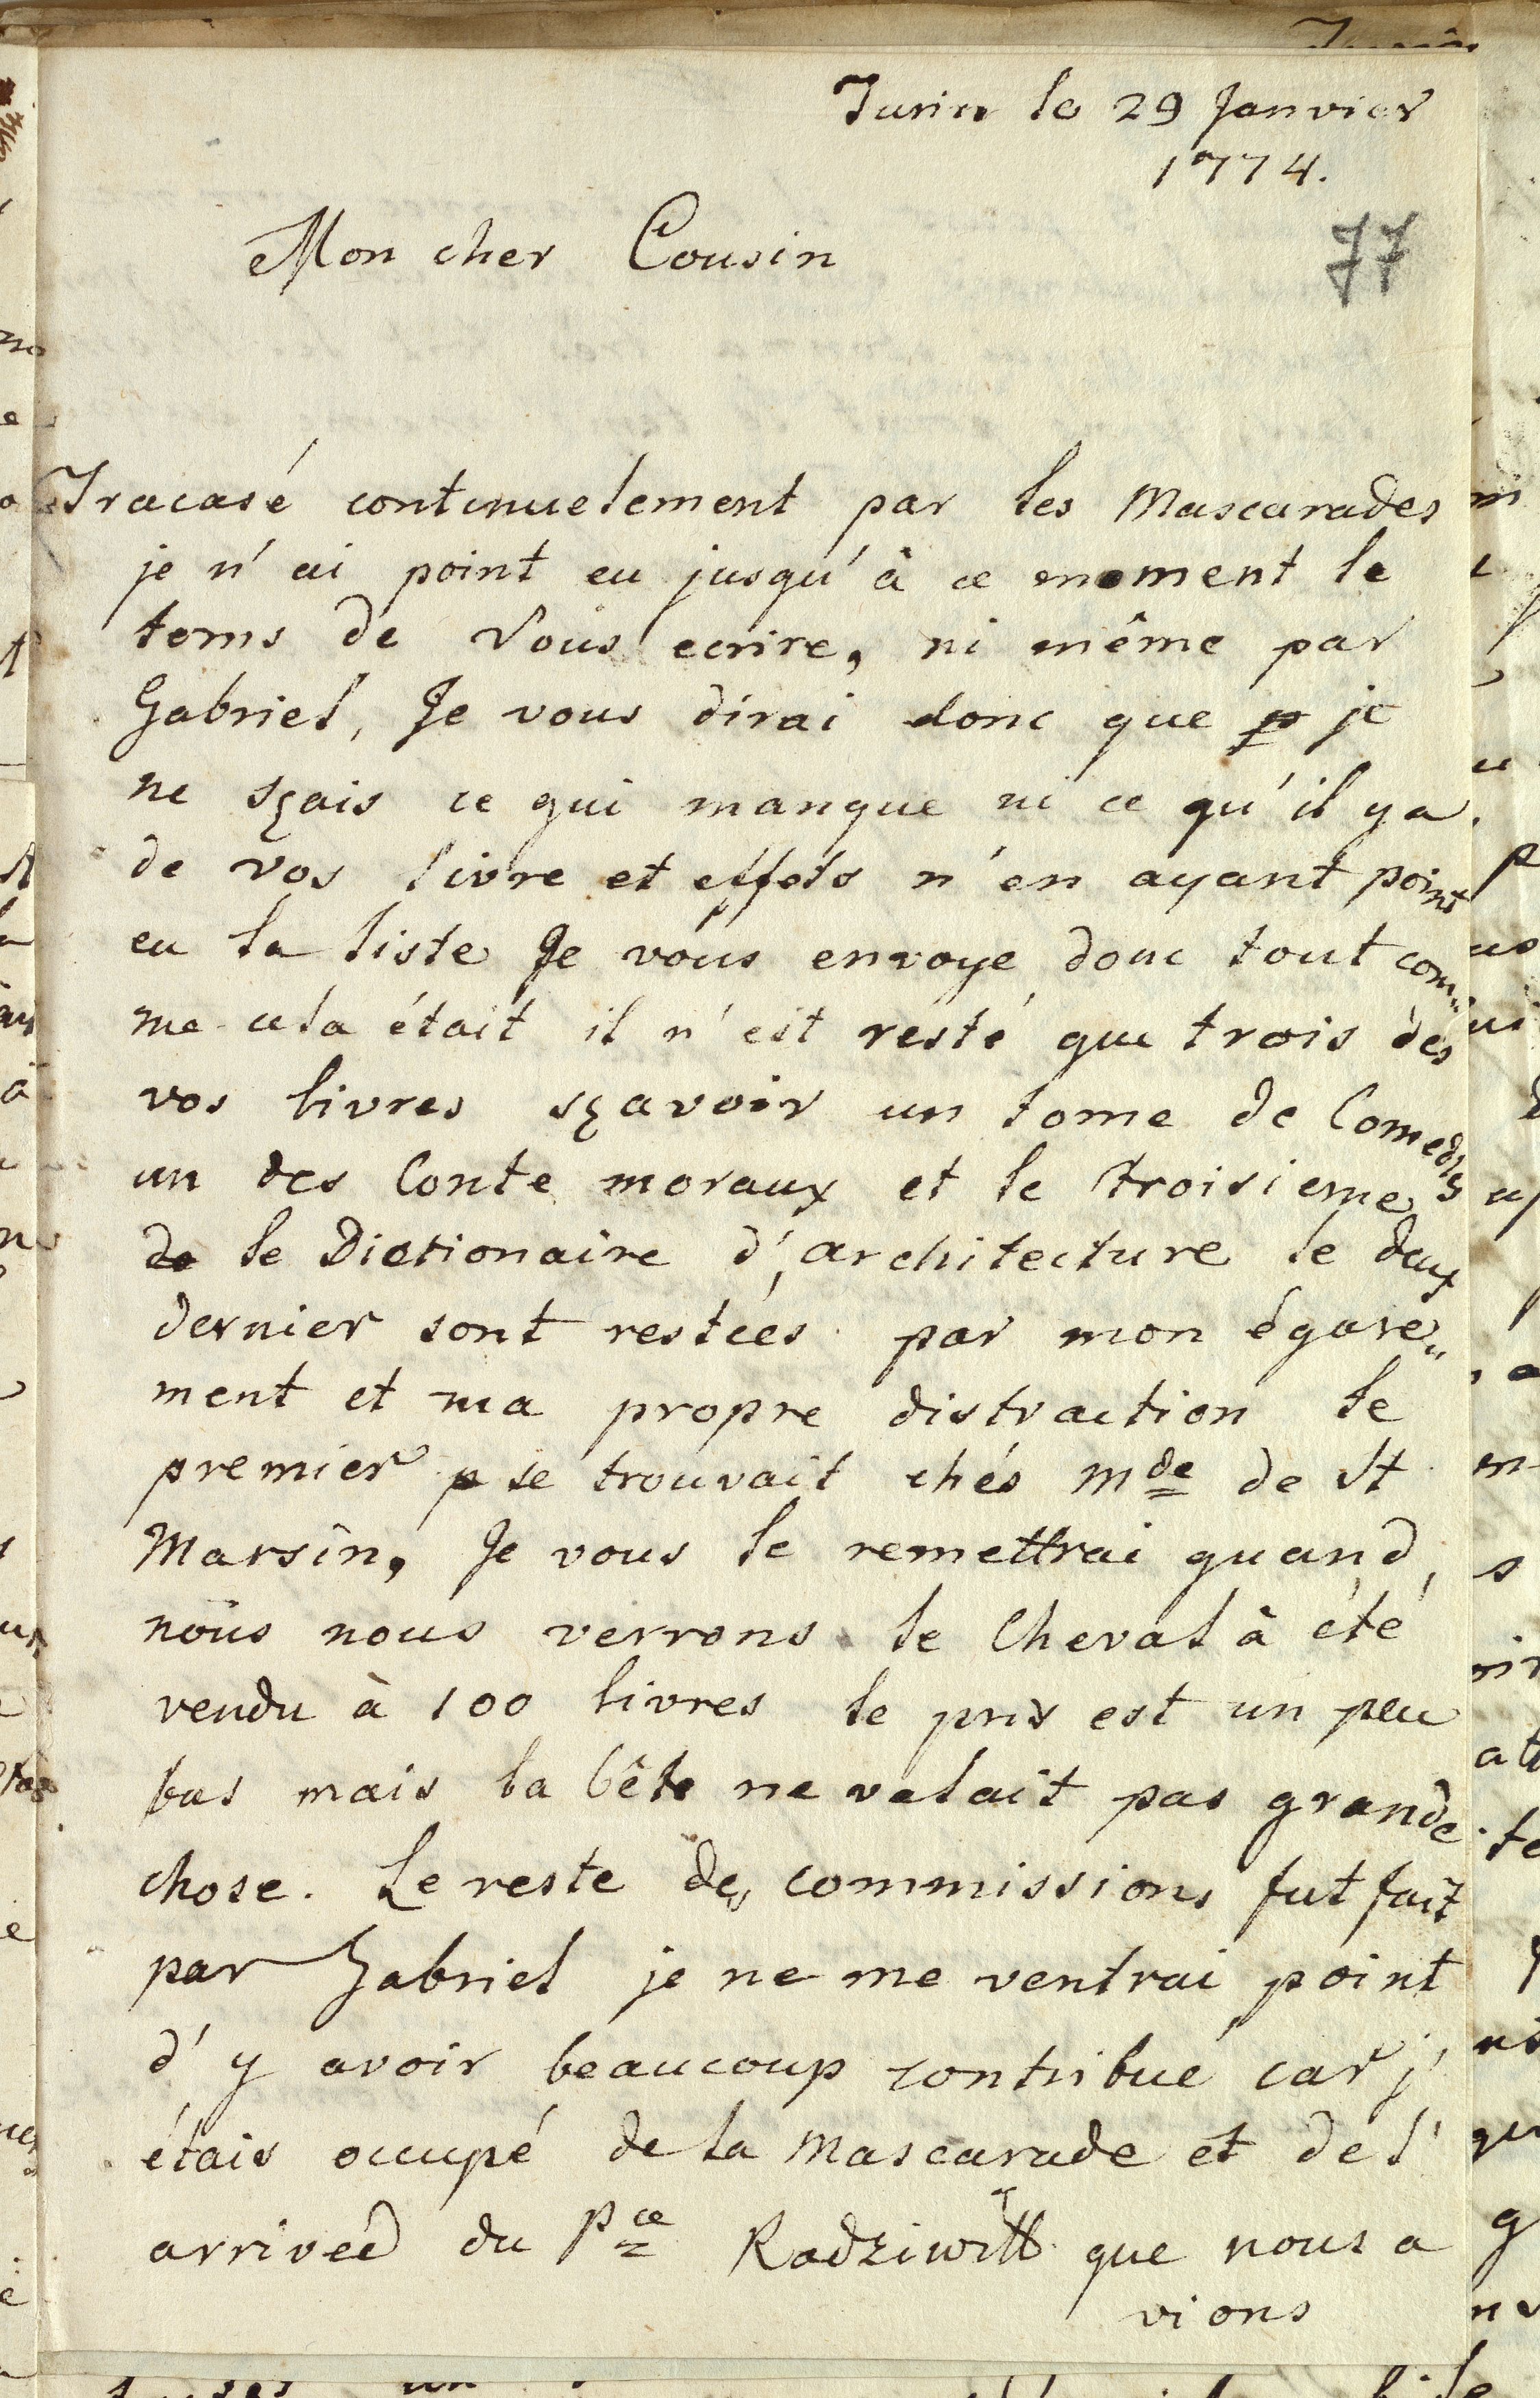 Turin le 29 Janvier
1774.
77
Mon cher Cousin
Tracasé continuelement par les Mascarades
je n'ai point eu jusqu'à ce moment le
tems de Vous ecrire, ni même par
Gabriel, Je vous dirai donc que p je
ne sçais ce qui manque ni ce qu'il y a
de vos livre et effets n'en ayant point
eu la liste Je vous envoye donc tout com„
me cela était il n'est resté que trois des
vos livres sçavoir un tome de Comedies
un des Conte moraux et le troisieme
de le Dictionaire d'architecture le deux
dernier sont restées par mon égare„
ment et ma propre distraction le
premier p se trouvait chés Mde de St
Marsin, Je vous le remettrai quand
nous nous verrons le Cheval à été
vendu à 100 livres le prix est un peu
bas mais la bête ne valait pas grande
chose. Le reste des commissions fut fait
par Gabriel je ne me ventrai point
d'y avoir beaucoup contribué car j'
étais occupé de la Mascarade et de l'
arriveé du Pce Radziwill que nous a
vions